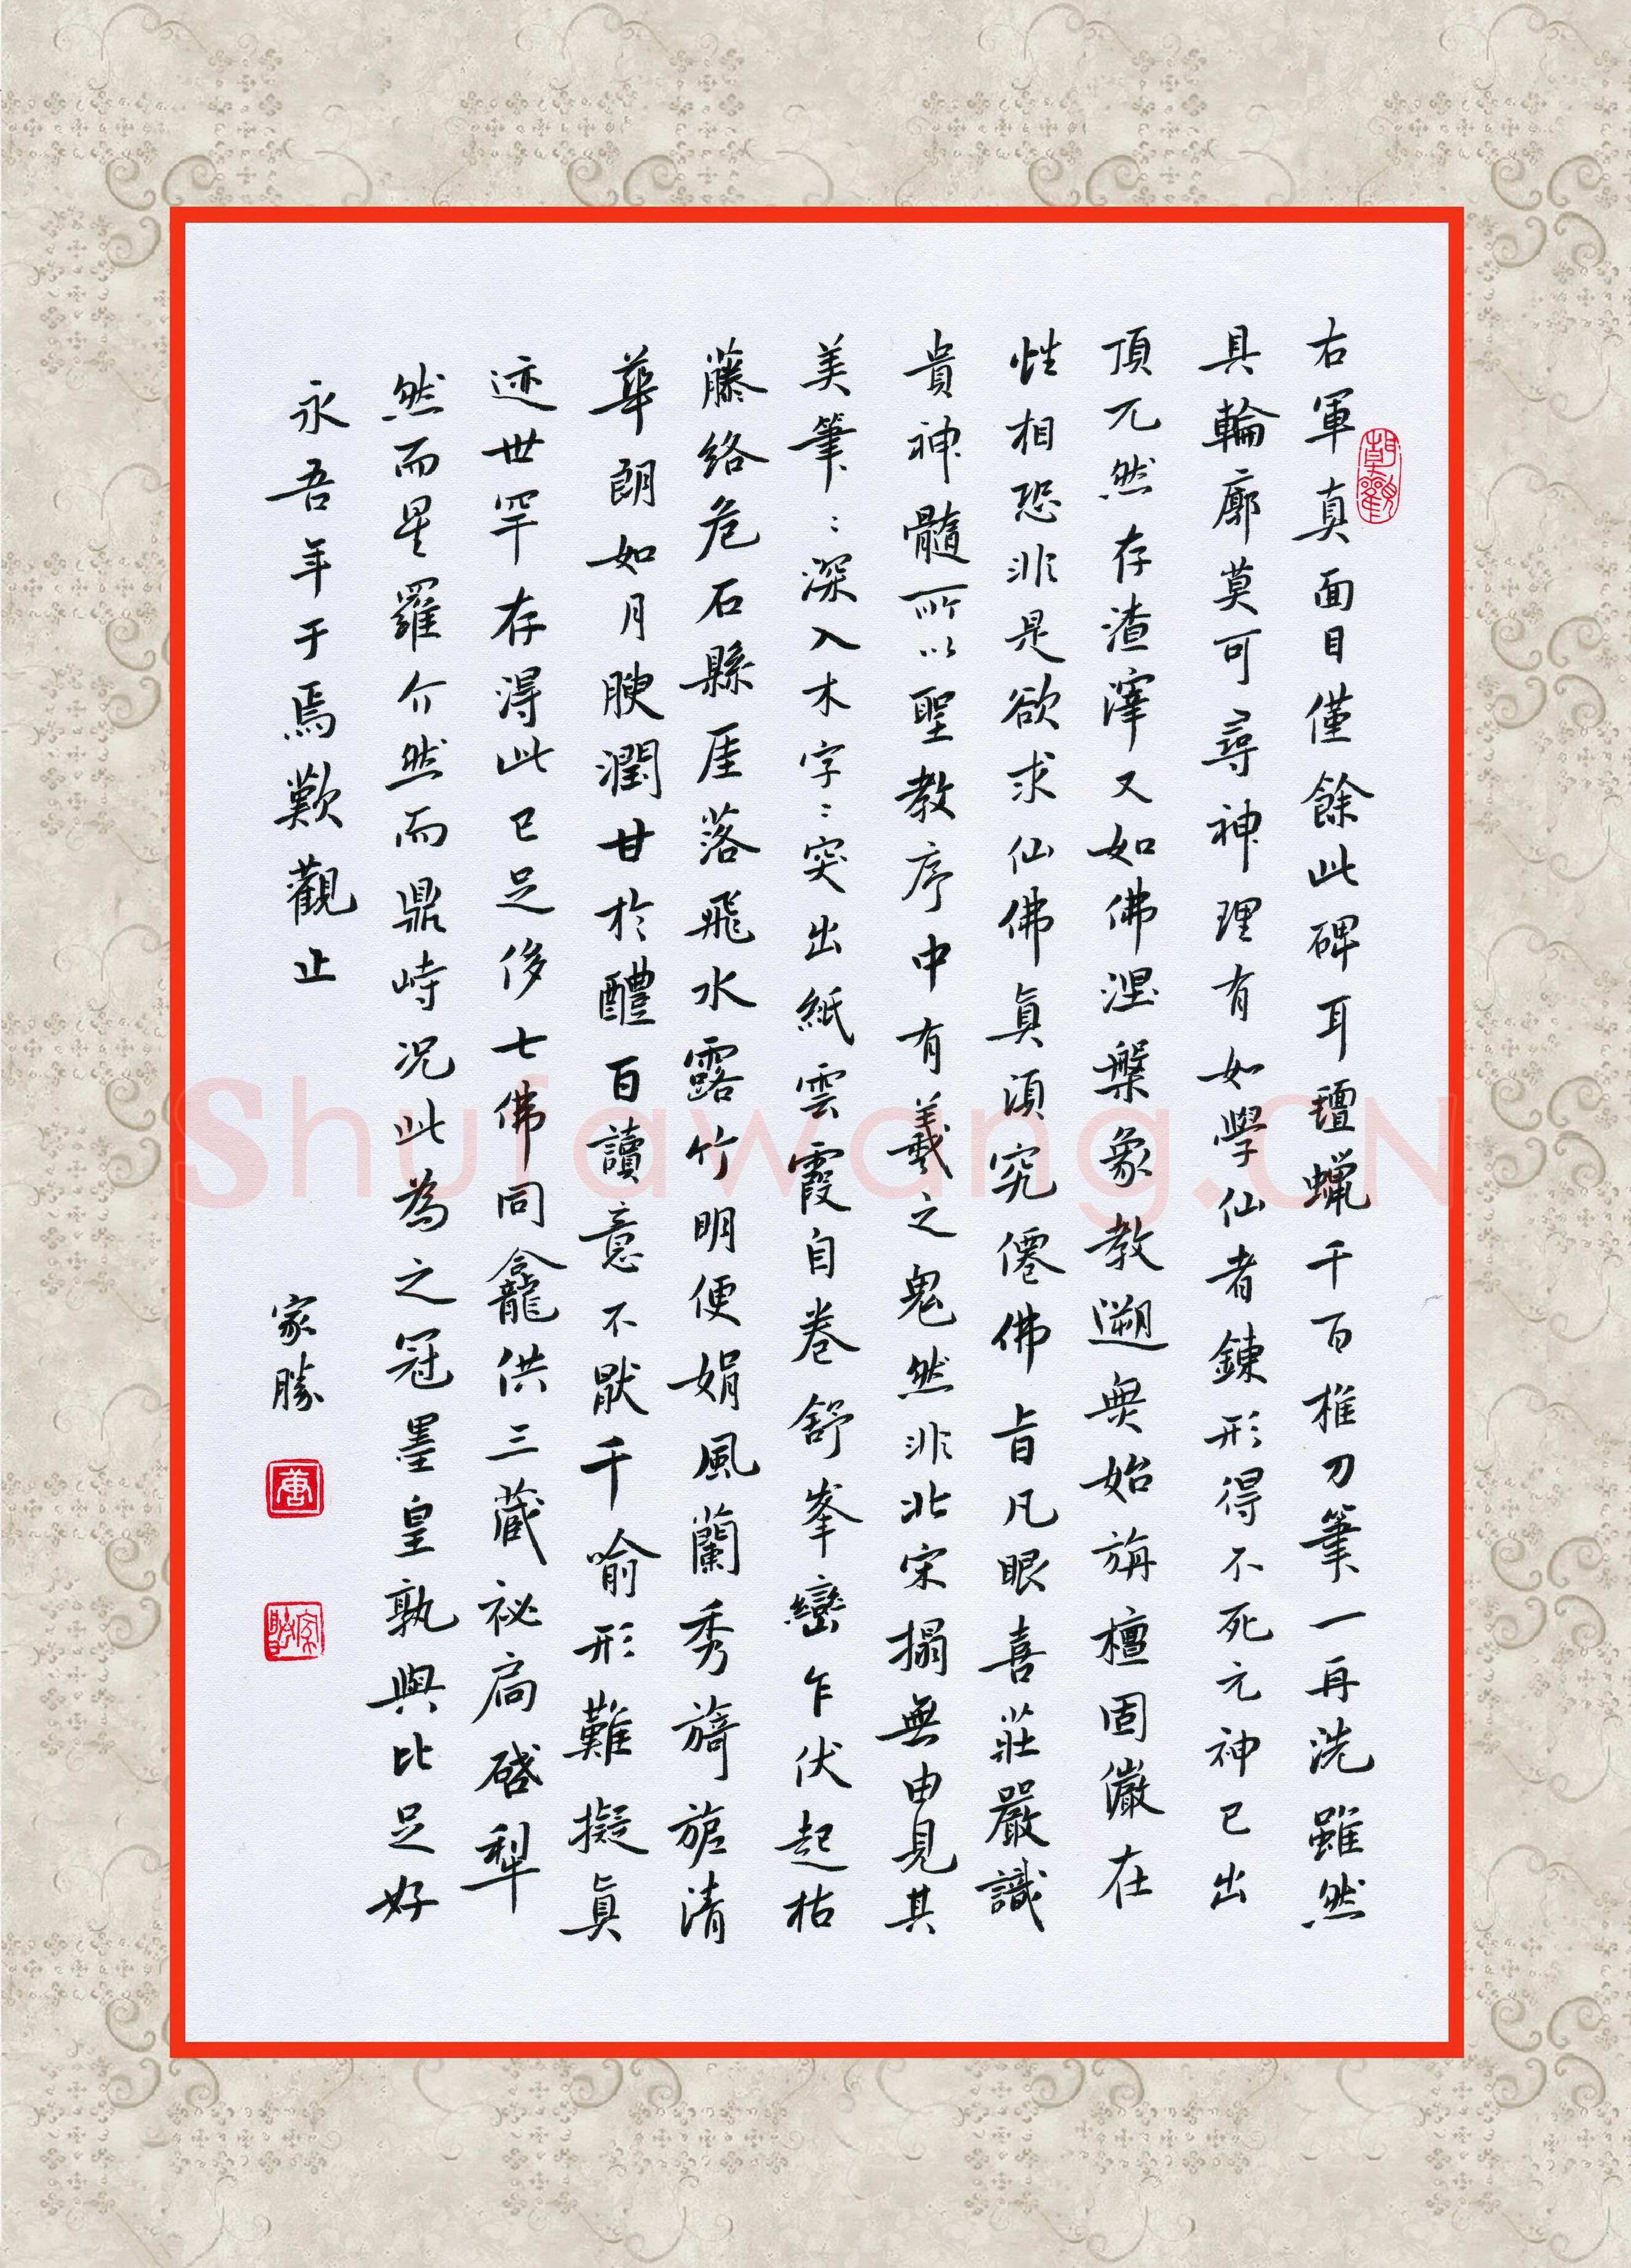 右軍真面目僅餘此碑耳氊蠟千百椎刀筆一再洗雖然
具輪廓莫可尋神理有如學仙者鍊形得不死元神已出
頂兀然存渣滓又如佛涅槃象教遡無始旃檀固儼在
性相恐非是欲求仙佛真須究僊佛旨凡眼喜莊嚴識
貴神髓所以聖教序中有羲之鬼然非北宋搨無由見其
美筆〻深入木字〻突出紙雲霞自卷舒峯巒乍伏起枯
藤絡危石縣厓落飛水露竹明便娟風蘭秀旖旎清
華朗如月腴潤甘於醴百讀意不厭千喻形難擬真
迹世罕存得此已足侈七佛同龕供三藏祕扃啓犁
然而星羅介然而鼎峙況此為之冠墨皇孰與比足好
永吾年于焉歎觀止
家勝
唐
家勝
Shufawang.CN